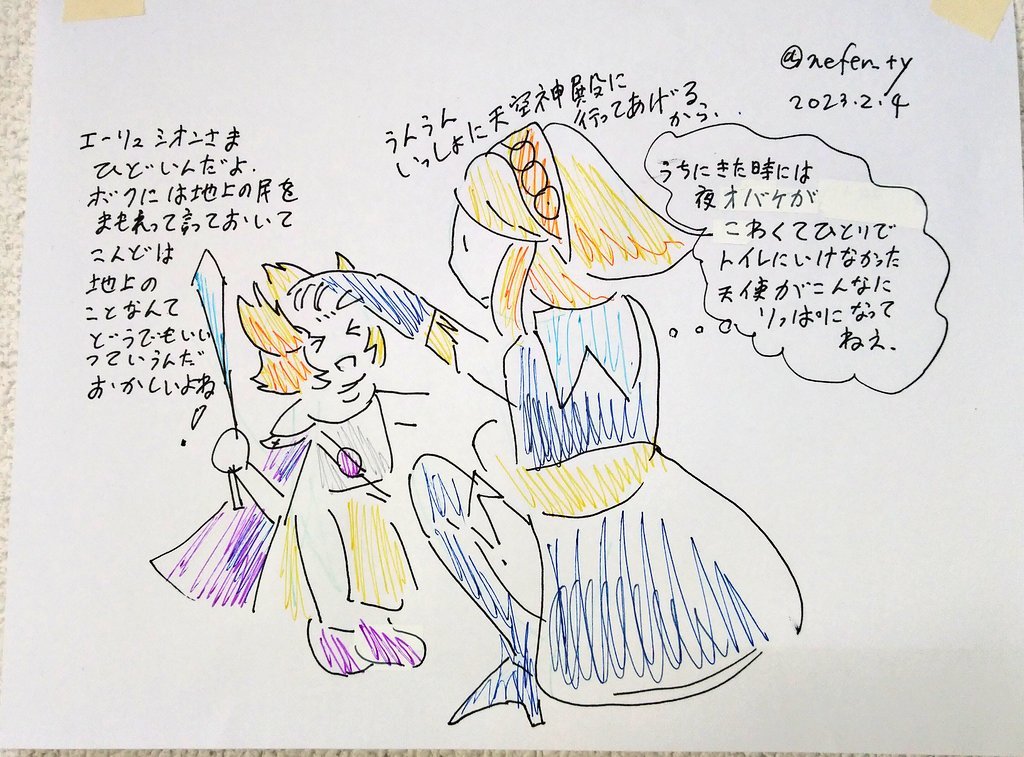 @nefen_ty
2023.2.4
エーリュシオンさま
ひどいんだよ.
ボクには地上の民を
まもれって言っておいて
こんどは
地上の
ことなんて
どうでもいい
っていうんだ
おかしいよね
!
うんうん
いっしょに天空神殿に
行ってあげる
から、・・
うちにきた時には
夜オバケが
こわくてひとりで
トイレにいけなかった
天使がこんなに
りっぱになって
ねえ.